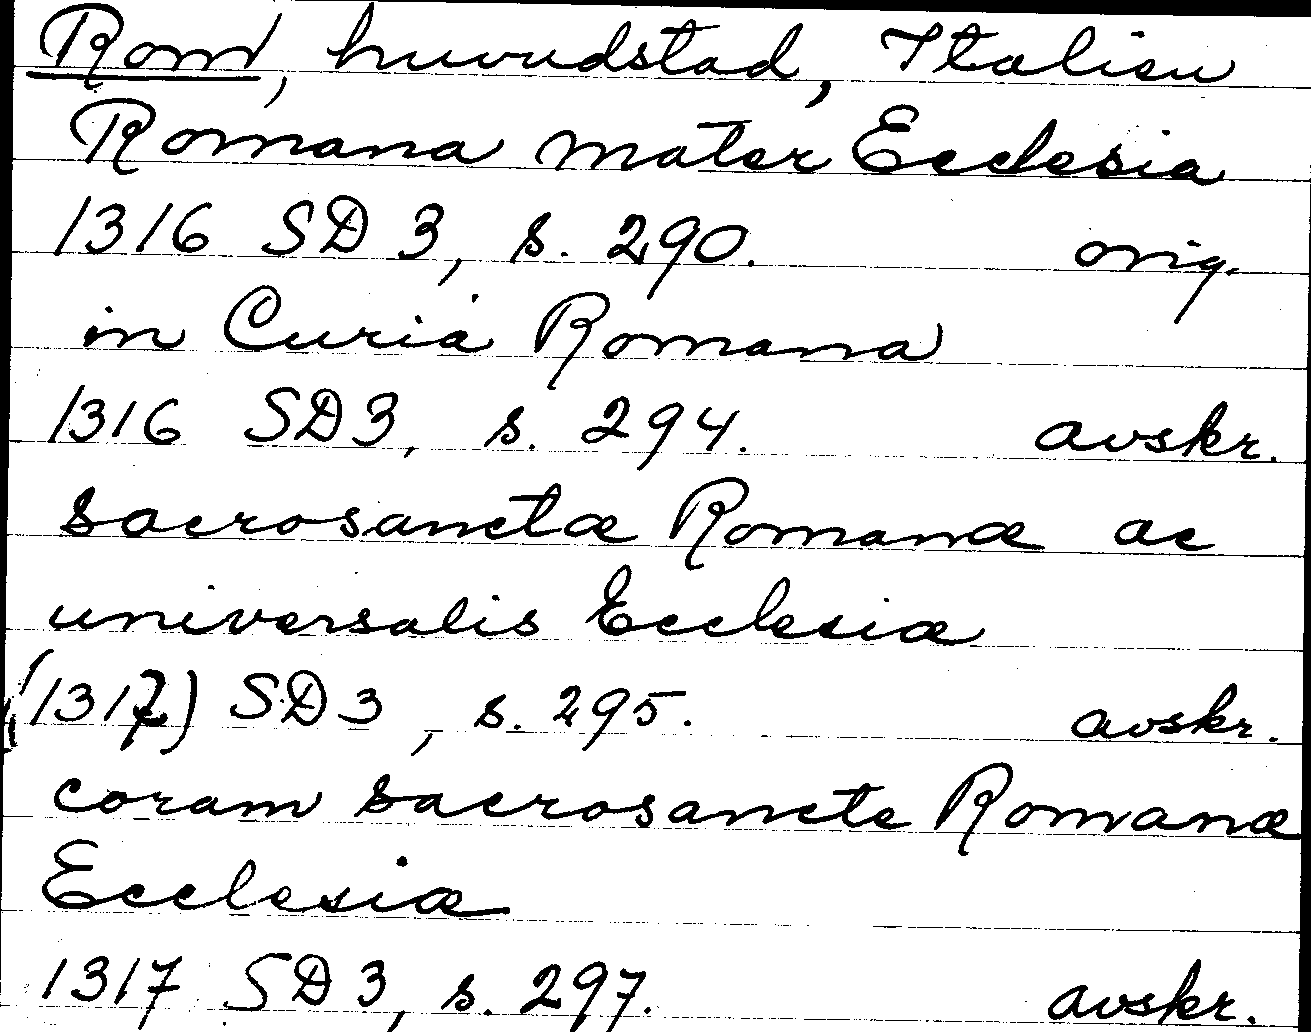 Rom, huvudstad, Italien
Romana mater Ecclesia
1316 SD 3, s. 290. orig.
in Curia Romana
1316 SD 3, s. 294. avskr.
sacrosanctæ Romanæ ac
universalis Ecclesiæ
(1317) SD 3, s. 295. avskr.
coram sacrosancte Romanæ
Ecclesiæ
1317 SD 3, s. 297. avskr.